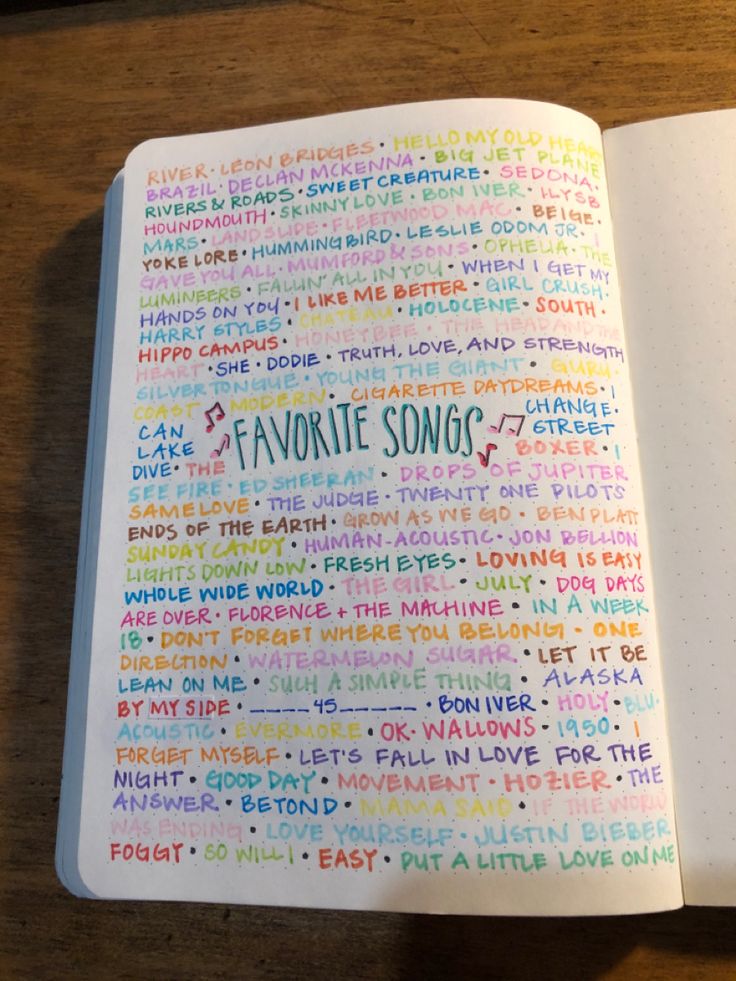 RIVER · LEON BRIDGES · HELLO MY OLD HEART
BRAZIL · DECLAN MCKENNA · BIG JET PLANE
RIVERS & ROADS · SWEET CREATURE · SEDONA ·
HOUNDMOUTH · SKINNY LOVE · BON IVER · ILYSB
MARS · LANDSLIDE · FLEETWOOD MAC · BEIGE ·
YOKE LORE · HUMMINGBIRD · LESLIE ODOM JR. · I
GAVE YOU ALL · MUMFORD & SONS · OPHELIA · THE
LUMINEERS · FALLIN' ALL IN YOU · WHEN I GET MY
HANDS ON YOU · I LIKE ME BETTER · GIRL CRUSH ·
HARRY STYLES · CHATEAU · HOLOCENE · SOUTH ·
HIPPO CAMPUS · HONEYBEE · THE HEAD AND THE
HEART · SHE · DODIE · TRUTH, LOVE, AND STRENGTH
SILVERTONGUE · YOUNG THE GIANT · GURU ·
COAST MODERN · CIGARETTE DAYDREAMS · I
CAN CHANGE ·
LAKE STREET
FAVORITE SONGS
DIVE · THE BOXER · I
SEE FIRE · ED SHEERAN · DROPS OF JUPITER
SAME LOVE · THE JUDGE · TWENTY ONE PILOTS
ENDS OF THE EARTH · GROW AS WE GO · BEN PLATT
SUNDAY CANDY · HUMAN-ACOUSTIC · JON BELLION
LIGHTS DOWN LOW · FRESH EYES · LOVING IS EASY
WHOLE WIDE WORLD · THE GIRL · JULY · DOG DAYS
ARE OVER · FLORENCE + THE MACHINE · IN A WEEK
18 · DON'T FORGET WHERE YOU BELONG - ONE
DIRECTION · WATERMELON SUGAR · LET IT BE
LEAN ON ME · SUCH A SIMPLE THING · ALASKA
BY MY SIDE · ____45_____ · BON IVER · HOLY · BLU·
ACOUSTIC · EVERMORE · OK · WALLOWS · 1950 · I
FORGET MYSELF · LET'S FALL IN LOVE FOR THE
NIGHT · GOOD DAY · MOVEMENT · HOZIER · THE
ANSWER · BEYOND · MAMA SAID · IF THE WORLD
WAS ENDING · LOVE YOURSELF · JUSTIN BIEBER
FOGGY · SO WILL I · EASY · PUT A LITTLE LOVE ON ME